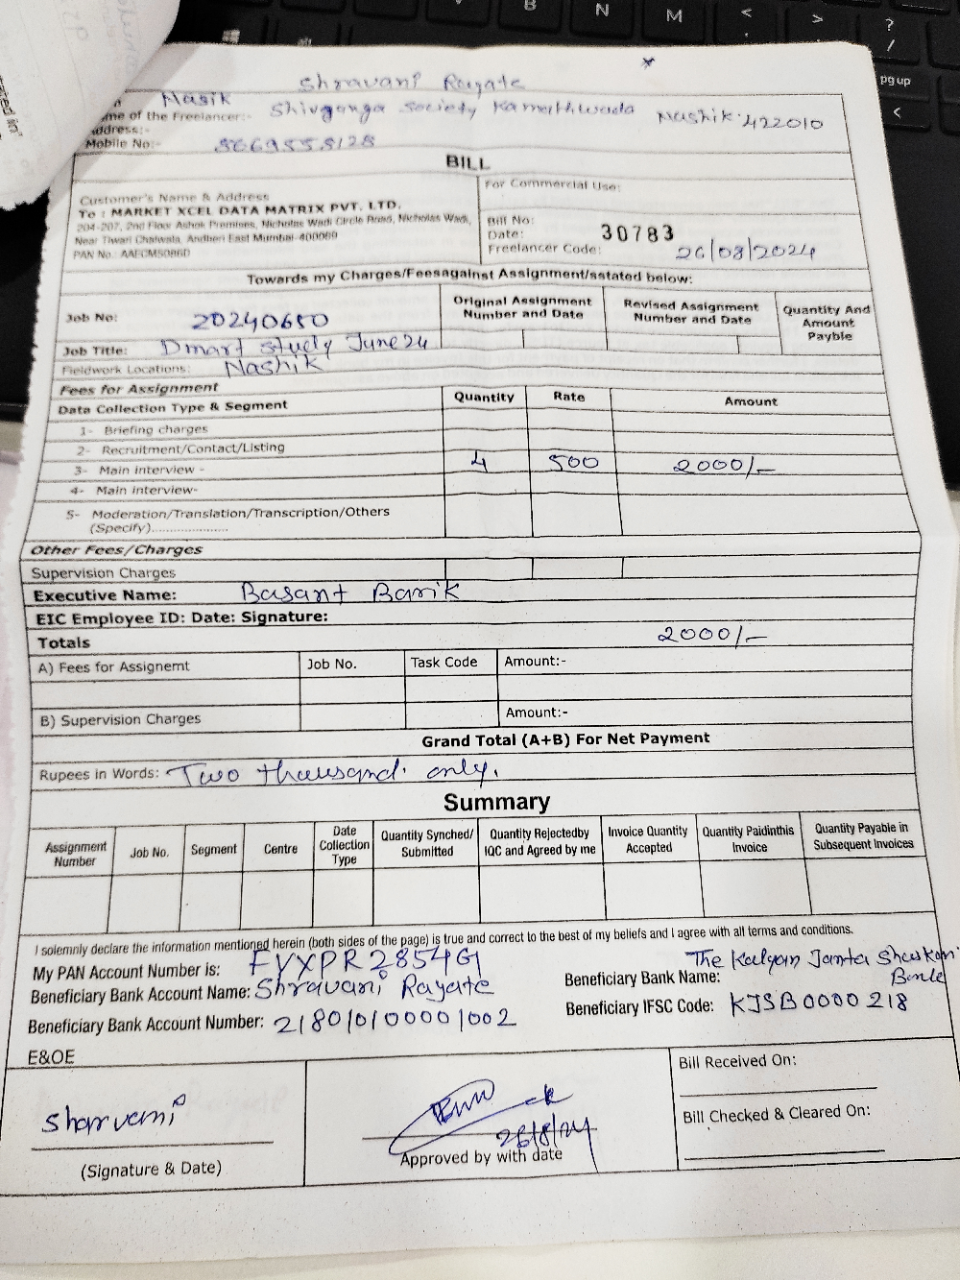 Shravani Rayate
Nasik
me of the Freelancer:- Shivganga Society Kamathwada Nashik 422010
ddress:-
Mobile No:-
BILL
Customer's Name & Address
To : MARKET XCEL DATA MATRIX PVT. LTD.
204-207, 2nd Floor Ashok Premises, Nicholas Wadi Circle Road, Nicholas Wadi,
Near Tiwari Chalwala, Andheri East Mumbai-400069
PAN No.: AAECM5086D
For Commercial Use:
Bill No: 30783
Date: 26/08/2024
Freelancer Code:
Towards my Charges/Feesagainst Assignment/sstated below:
Job No: 20240650
Original Assignment Number and Date
Revised Assignment Number and Date
Quantity And Amount Payble
Job Title: Dmart study June 24
Fieldwork Locations: Nashik
Fees for Assignment
Data Collection Type & Segment Quantity Rate Amount
1- Briefing charges
2- Recruitment/Contact/Listing
3- Main interview - 4 500 2000/-
4- Main interview-
5- Moderation/Translation/Transcription/Others
(Specify)....................
Other Fees/Charges
Supervision Charges
Executive Name: Basant Barik
EIC Employee ID: Date: Signature:
Totals 2000/-
A) Fees for Assignemt Job No. Task Code Amount:-
B) Supervision Charges Amount:-
Grand Total (A+B) For Net Payment
Rupees in Words: Two thousand only.
Summary
Assignment Number
Job No.
Segment
Centre
Date Collection Type
Quantity Synched/ Submitted
Quantity Rejectedby IQC and Agreed by me
Invoice Quantity Accepted
Quantity Paidinthis Invoice
Quantity Payable in Subsequent Invoices
I solemnly declare the information mentioned herein (both sides of the page) is true and correct to the best of my beliefs and I agree with all terms and conditions.
My PAN Account Number is: FYXPR2854G
Beneficiary Bank Name: The Kalyan Janta
Beneficiary Bank Account Name: Shravani Rayate
Beneficiary IFSC Code: KJSB0000218
Beneficiary Bank Account Number: 218010100001002
E&OE
Bill Received On:
Bill Checked & Cleared On:
Sharvani
26/8/24
(Signature & Date)
Approved by with date
B N M < > ? /
pg up
<